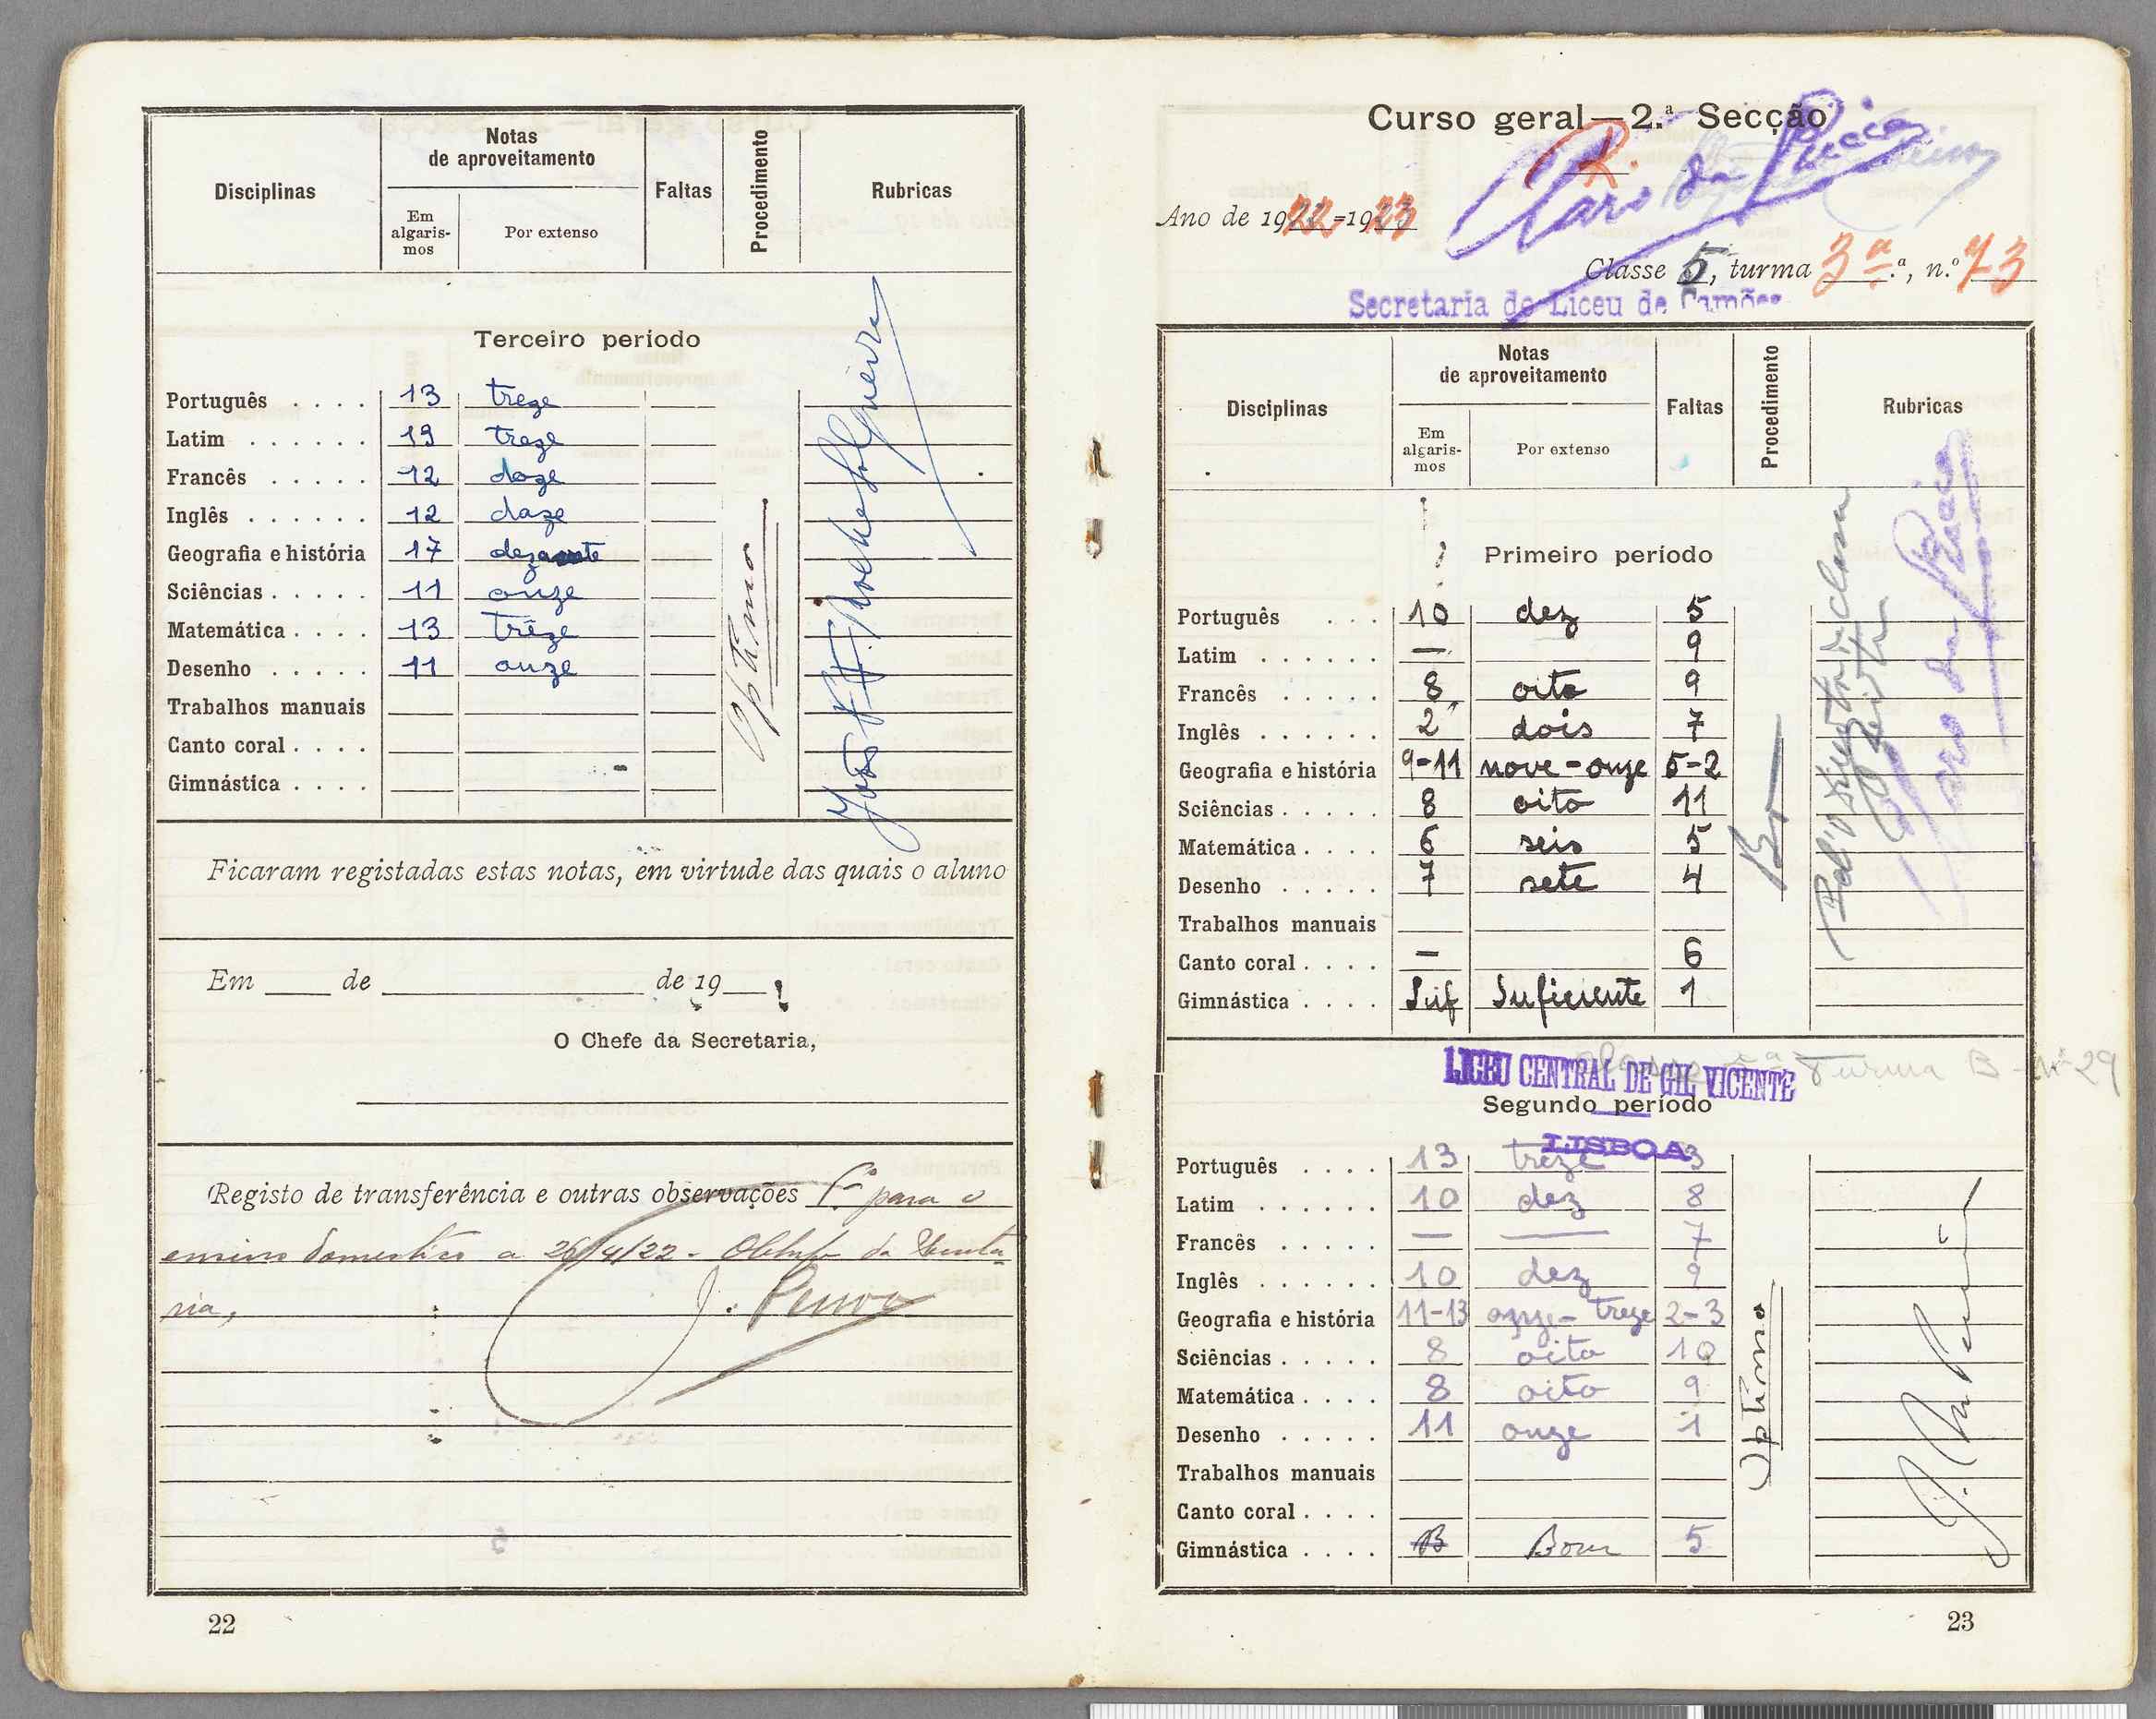 Disciplinas Notas de aproveitamento Faltas Procedimento Rubricas
Em algaris-mos Por extenso
Terceiro período
Português . . . . 13 treze
Latim . . . . . . 13 treze
Francês . . . . . 12 doze
Inglês . . . . . . 12 doze
Geografia e história 17
Sciências . . . . . 11 onze
Matemática . . . . 13 trêze
Desenho . . . . . 11 onze
Trabalhos manuais
Canto coral . . . .
Gimnástica . . . .
Optimo
Ficaram registadas estas notas, em virtude das quais o aluno
Em ____ de ____ de 19__
O Chefe da Secretaria,
Registo de transferência e outras observações para o
ensino domestico a 26/4/22 - O da Secreta-
ria,
22
Curso geral—2.ª Secção
R.
Ano de 1922=1923
Classe 5, turma 3ª.ª, n.º 73
Secretaria do Liceu de Camões
Disciplinas Notas de aproveitamento Faltas Procedimento Rubricas
Em algaris-mos Por extenso
Primeiro período
Português . . . 10 dez 5
Latim . . . . . . — 9
Francês . . . . . 8 oito 9
Inglês . . . . . . 2 dois 7
Geografia e história 9-11 nove-onze 5-2
Sciências . . . . . 8 oito 11
Matemática . . . . 6 seis 5
Desenho . . . . . 7 sete 4
Trabalhos manuais
Canto coral . . . . — 6
Gimnástica . . . . Suf Suficiente 1
LICEU CENTRAL DE GIL VICENTE
Turma B - Nº 29
Segundo período
LISBOA
Português . . . . 13 treze 3
Latim . . . . . . 10 dez 8
Francês . . . . . — — 7
Inglês . . . . . . 10 dez 9
Geografia e história 11-13 onze-treze 2-3
Sciências . . . . . 8 oito 10
Matemática . . . . 8 oito 9
Desenho . . . . . 11 onze 1
Trabalhos manuais
Canto coral . . . .
Gimnástica . . . . B Bom 5
Optimo
23